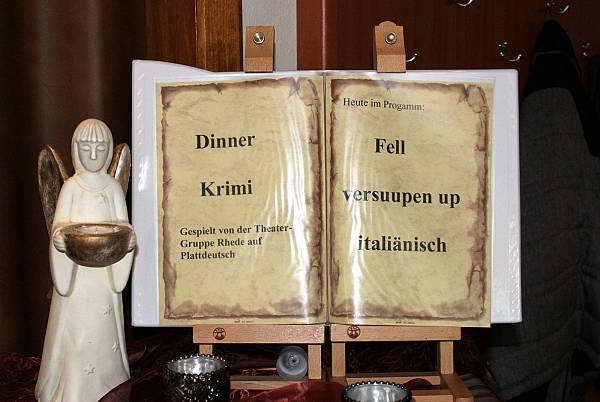 Dinner
Krimi
Gespielt von der Theater-
Gruppe Rhede auf
Plattdeutsch
Heute im Progamm:
Fell
versuupen up
italiänisch